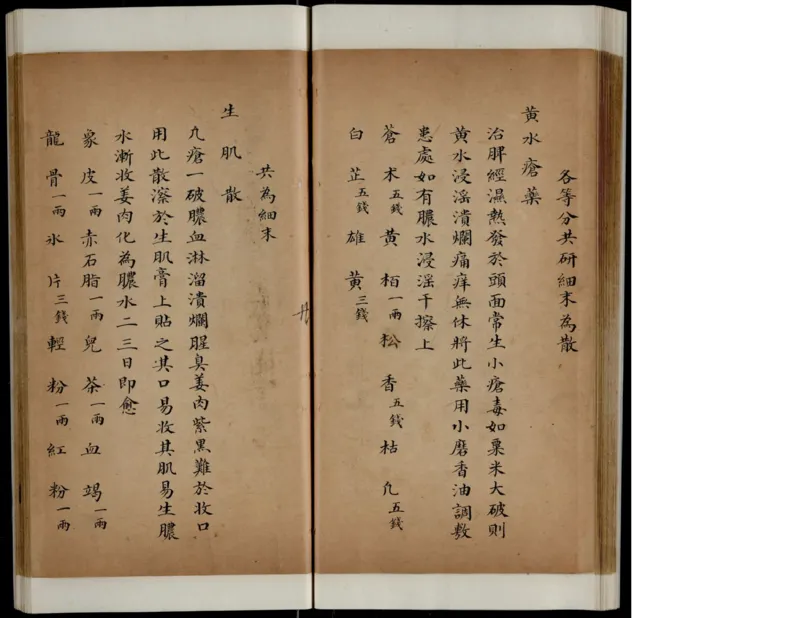 各等分共研細末為散
黃水瘡藥
治脾經濕熱發於頭面常生小瘡毒如粟米大破則
黃水浸淫潰爛痛痒無休將此藥用小磨香油調敷
患處如有膿水浸淫干擦上
蒼朮五錢黃栢一兩松香五錢枯凡五錢
白芷五錢雄黃三錢
共為細末
生肌散
凢瘡一破膿血淋溜潰爛腥臭姜肉紫黑難於收口
用此散滲於生肌膏上貼之其口易收其肌易生膿
水漸收姜肉化為膿水二三日即愈
象皮一兩赤石脂一兩兒茶一兩血竭一兩
龍骨一兩氷片三錢輕粉一兩紅粉一兩